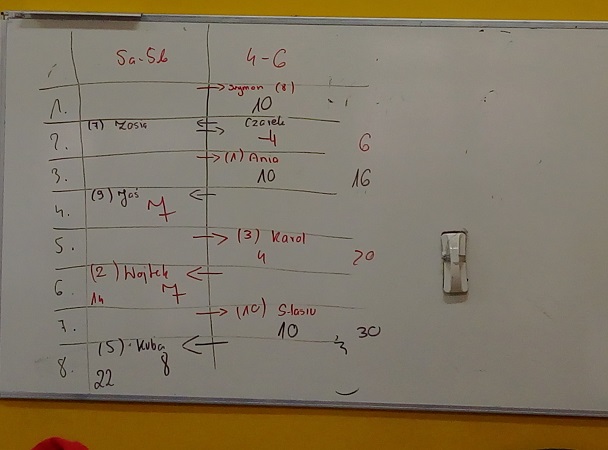 5a-5b 4-6
Szymon (8)
1. 10
(7) Zosia Czarek
2. -4 6
(1) Ania
3. 10 16
(9) Joś
4. 7
(3) Karol
5. 4 20
(2) Wojtek
6. 14 7
(10) Stasiu
7. 10 30
(5) Kuba
8. 22 8